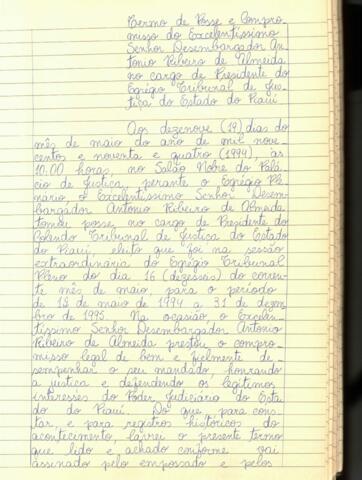 Termo de Posse e Compro-
misso do Excelentíssimo
Senhor Desembargador An-
tonio Ribeiro de Almeida
no cargo de Presidente do
Egrégio Tribunal de Jus-
tiça do Estado do Piauí
Aos dezenove (19) dias do
mês de maio do ano de mil nove-
centos e noventa e quatro (1994) às
10:00 horas, no Salão Nobre do Palá-
cio de Justiça, perante o Egrégio Ple-
nário, o Excelentíssimo Senhor Desem-
bargador Antonio Ribeiro de Almeida
tomou posse no cargo de Presidente do
Colendo Tribunal de Justiça do Estado
do Piauí, eleito que foi na sessão
extraordinária do Egrégio Tribunal
Pleno do dia 16 (dezesseis) do corren-
te mês de maio, para o período
de 19 de maio de 1994 a 31 de dezem-
bro de 1995. Na ocasião, o Excelen-
tíssimo Senhor Desembargador Antonio
Ribeiro de Almeida prestou o compro-
misso legal de bem e fielmente de-
sempenhar o seu mandado, honrando
a justiça e defendendo os legítimos
interesses do Poder Judiciário do Esta-
do do Piauí. Do que para cons-
tar, e para registros históricos do
acontecimento, lavrei o presente termo
que lido e achado conforme vai
assinado pelo empossado e pelos